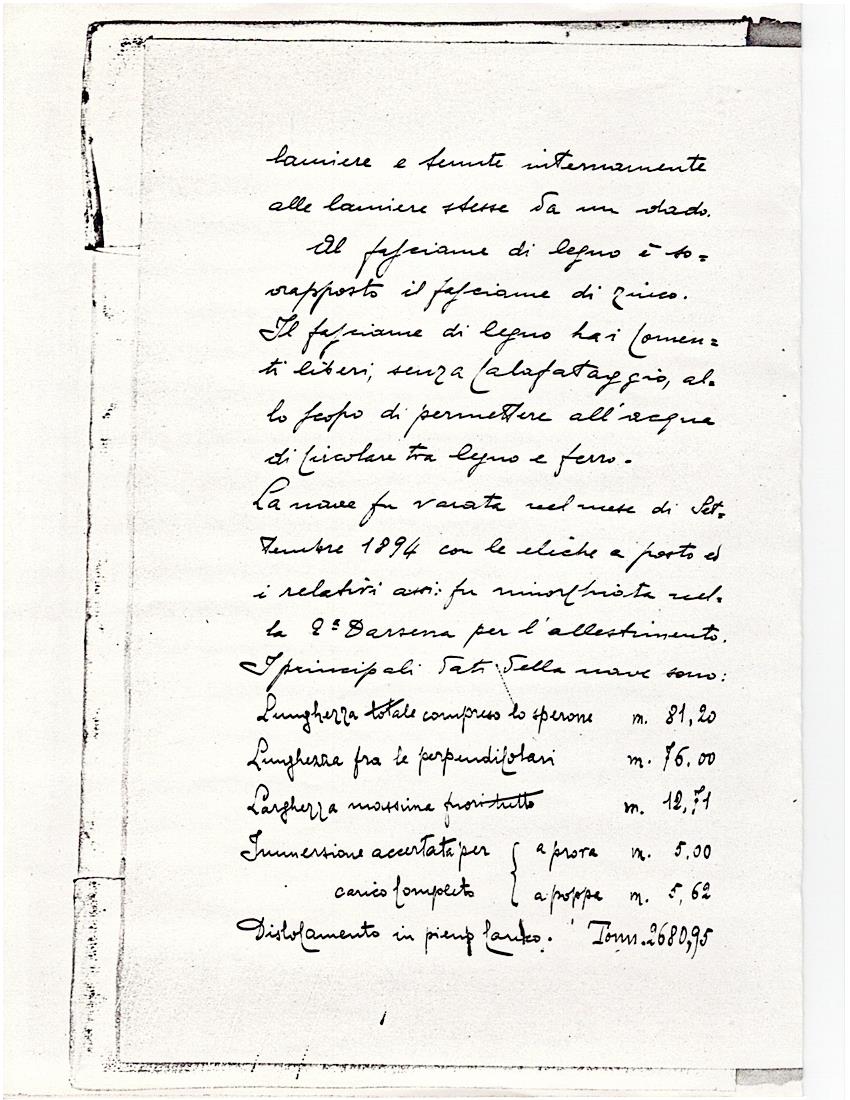 lamiere e tenute internamente
alle lamiere stesse da un dado.
Al fasciame di legno è so=
vrapposto il fasciame di zinco.
Il fasciame di legno ha i comen=
ti liberi, senza calafataggio, al=
lo scopo di permettere all'acqua
di circolare tra legno e ferro.
La nave fu varata nel mese di Set=
tembre 1894 con le eliche a posto ed
i relativi assi: fu rimorchiata nel=
la 2ª Darsena per l'allestimento.
I principali dati della nave sono:
Lunghezza totale compreso lo sperone m. 81,20
Lunghezza fra le perpendicolari m. 76.00
Larghezza massima fuori tutto m. 12,71
Immersione accertata per { a prora m. 5.00
carico completo { a poppa m. 5,62
Dislocamento in pieno carico. Tonn. 2680,95